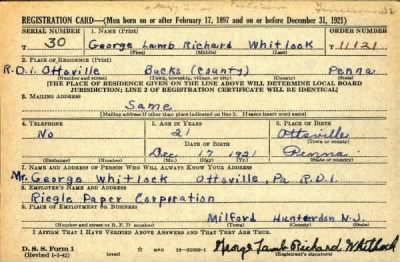 REGISTRATION CARD—(Men born on or after February 17, 1897 and on or before December 31, 1921)
SERIAL NUMBER 1. NAME (Print) ORDER NUMBER
T 30 George Lamb Richard Whitlock T 11121
(First) (Middle) (Last)
2. PLACE OF RESIDENCE (Print)
R.D.1. Ottsville Bucks (County) Penna
(Number and street) (Town, township, village, or city) (County) (State)
[THE PLACE OF RESIDENCE GIVEN ON THE LINE ABOVE WILL DETERMINE LOCAL BOARD
JURISDICTION; LINE 2 OF REGISTRATION CERTIFICATE WILL BE IDENTICAL]
3. MAILING ADDRESS
Same
[Mailing address if other than place indicated on line 2. If same insert word same]
4. TELEPHONE 5. AGE IN YEARS 6. PLACE OF BIRTH
No 21 Ottsville
DATE OF BIRTH (Town or county)
Dec 17 1921 Penna
(Exchange) (Number) (Mo.) (Day) (Yr.) (State or country)
7. NAME AND ADDRESS OF PERSON WHO WILL ALWAYS KNOW YOUR ADDRESS
Mr. George Whitlock Ottsville, Pa R.D.1.
8. EMPLOYER'S NAME AND ADDRESS
Riegle Paper Corporation
9. PLACE OF EMPLOYMENT OR BUSINESS
Milford Hunterdon N.J.
(Number and street or R. F. D. number) (Town) (County) (State)
I AFFIRM THAT I HAVE VERIFIED ABOVE ANSWERS AND THAT THEY ARE TRUE.
D. S. S. Form 1 George Lamb Richard Whitlock
(Revised 1-1-42) (over) (Registrant's signature)